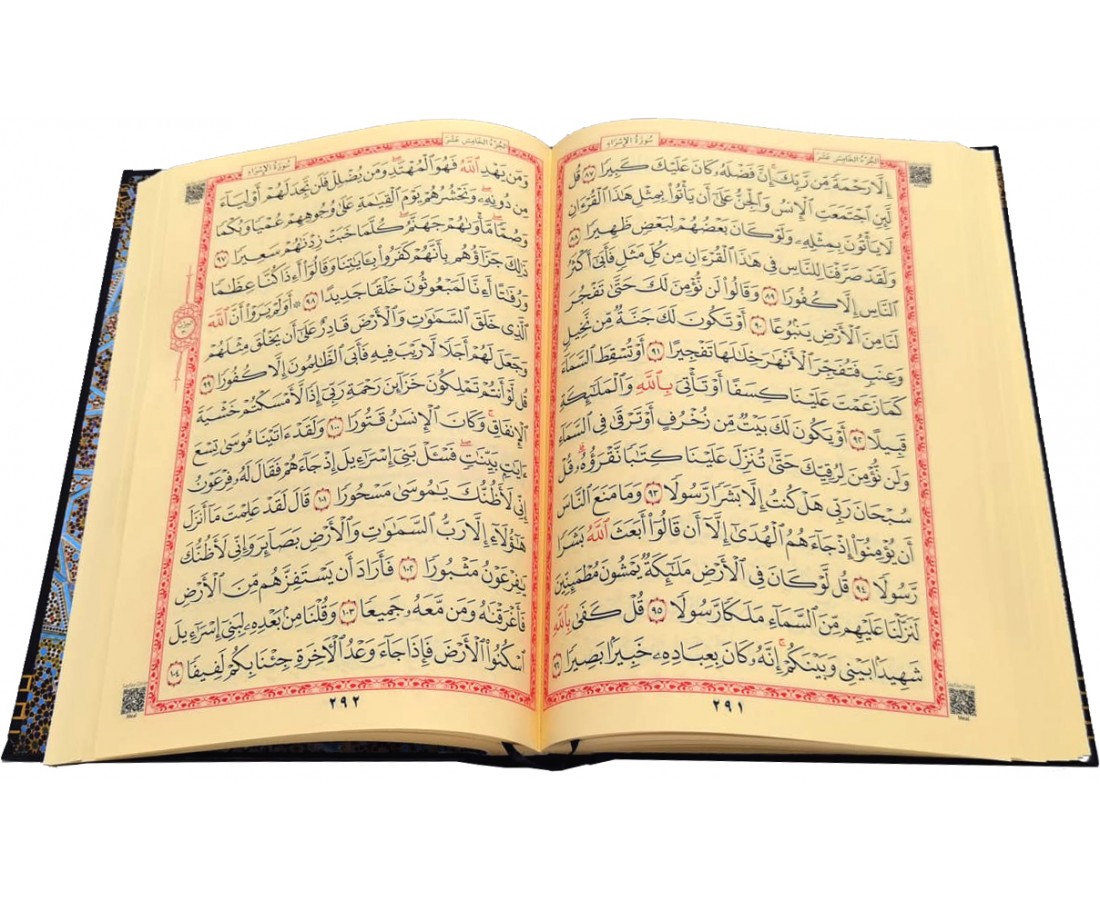 سُورَةُ الإِسْرَاءِ
الجُزْءُ الخَامِسَ عَشَرَ
إِلَّا رَحْمَةً مِّن رَّبِّكَ إِنَّ فَضْلَهُۥ كَانَ عَلَيْكَ كَبِيرًا ٨٧ قُل
لَّئِنِ ٱجْتَمَعَتِ ٱلْإِنسُ وَٱلْجِنُّ عَلَىٰٓ أَن يَأْتُوا۟ بِمِثْلِ هَٰذَا ٱلْقُرْءَانِ
لَا يَأْتُونَ بِمِثْلِهِۦ وَلَوْ كَانَ بَعْضُهُمْ لِبَعْضٍ ظَهِيرًا ٨٨
وَلَقَدْ صَرَّفْنَا لِلنَّاسِ فِى هَٰذَا ٱلْقُرْءَانِ مِن كُلِّ مَثَلٍ فَأَبَىٰٓ أَكْثَرُ
ٱلنَّاسِ إِلَّا كُفُورًا ٨٩ وَقَالُوا۟ لَن نُّؤْمِنَ لَكَ حَتَّىٰ تَفْجُرَ
لَنَا مِنَ ٱلْأَرْضِ يَنۢبُوعًا ٩٠ أَوْ تَكُونَ لَكَ جَنَّةٌ مِّن نَّخِيلٍ
وَعِنَبٍ فَتُفَجِّرَ ٱلْأَنْهَٰرَ خِلَٰلَهَا تَفْجِيرًا ٩١ أَوْ تُسْقِطَ ٱلسَّمَآءَ
كَمَا زَعَمْتَ عَلَيْنَا كِسَفًا أَوْ تَأْتِىَ بِٱللَّهِ وَٱلْمَلَٰٓئِكَةِ
قَبِيلًا ٩٢ أَوْ يَكُونَ لَكَ بَيْتٌ مِّن زُخْرُفٍ أَوْ تَرْقَىٰ فِى ٱلسَّمَآءِ
وَلَن نُّؤْمِنَ لِرُقِيِّكَ حَتَّىٰ تُنَزِّلَ عَلَيْنَا كِتَٰبًا نَّقْرَؤُهُۥ ۗ قُلْ
سُبْحَانَ رَبِّى هَلْ كُنتُ إِلَّا بَشَرًا رَّسُولًا ٩٣ وَمَا مَنَعَ ٱلنَّاسَ
أَن يُؤْمِنُوٓا۟ إِذْ جَآءَهُمُ ٱلْهُدَىٰٓ إِلَّآ أَن قَالُوٓا۟ أَبَعَثَ ٱللَّهُ بَشَرًا
رَّسُولًا ٩٤ قُل لَّوْ كَانَ فِى ٱلْأَرْضِ مَلَٰٓئِكَةٌ يَمْشُونَ مُطْمَئِنِّينَ
لَنَزَّلْنَا عَلَيْهِم مِّنَ ٱلسَّمَآءِ مَلَكًا رَّسُولًا ٩٥ قُلْ كَفَىٰ بِٱللَّهِ
شَهِيدًۢا بَيْنِى وَبَيْنَكُمْ ۚ إِنَّهُۥ كَانَ بِعِبَادِهِۦ خَبِيرًۢا بَصِيرًا ٩٦
٢٩١
الجُزْءُ الخَامِسَ عَشَرَ
سُورَةُ الإِسْرَاءِ
وَمَن يَهْدِ ٱللَّهُ فَهُوَ ٱلْمُهْتَدِ ۖ وَمَن يُضْلِلْ فَلَن تَجِدَ لَهُمْ أَوْلِيَآءَ
مِن دُونِهِۦ ۖ وَنَحْشُرُهُمْ يَوْمَ ٱلْقِيَٰمَةِ عَلَىٰ وُجُوهِهِمْ عُمْيًا وَبُكْمًا
وَصُمًّا ۖ مَّأْوَىٰهُمْ جَهَنَّمُ ۖ كُلَّمَا خَبَتْ زِدْنَٰهُمْ سَعِيرًا ٩٧
ذَٰلِكَ جَزَآؤُهُم بِأَنَّهُمْ كَفَرُوا۟ بِـَٔايَٰتِنَا وَقَالُوٓا۟ أَءِذَا كُنَّا عِظَٰمًا
وَرُفَٰتًا أَءِنَّا لَمَبْعُوثُونَ خَلْقًا جَدِيدًا ٩٨ ۞ أَوَلَمْ يَرَوْا۟ أَنَّ ٱللَّهَ
ٱلَّذِى خَلَقَ ٱلسَّمَٰوَٰتِ وَٱلْأَرْضَ قَادِرٌ عَلَىٰٓ أَن يَخْلُقَ مِثْلَهُمْ
وَجَعَلَ لَهُمْ أَجَلًا لَّا رَيْبَ فِيهِ فَأَبَى ٱلظَّٰلِمُونَ إِلَّا كُفُورًا ٩٩
قُل لَّوْ أَنتُمْ تَمْلِكُونَ خَزَآئِنَ رَحْمَةِ رَبِّىٓ إِذًا لَّأَمْسَكْتُمْ خَشْيَةَ
ٱلْإِنفَاقِ ۚ وَكَانَ ٱلْإِنسَٰنُ قَتُورًا ١٠٠ وَلَقَدْ ءَاتَيْنَا مُوسَىٰ تِسْعَ
ءَايَٰتٍۭ بَيِّنَٰتٍ ۖ فَسْـَٔلْ بَنِىٓ إِسْرَٰٓءِيلَ إِذْ جَآءَهُمْ فَقَالَ لَهُۥ فِرْعَوْنُ
إِنِّى لَأَظُنُّكَ يَٰمُوسَىٰ مَسْحُورًا ١٠١ قَالَ لَقَدْ عَلِمْتَ مَآ أَنزَلَ
هَٰٓؤُلَآءِ إِلَّا رَبُّ ٱلسَّمَٰوَٰتِ وَٱلْأَرْضِ بَصَآئِرَ وَإِنِّى لَأَظُنُّكَ
يَٰفِرْعَوْنُ مَثْبُورًا ١٠٢ فَأَرَادَ أَن يَسْتَفِزَّهُم مِّنَ ٱلْأَرْضِ
فَأَغْرَقْنَٰهُ وَمَن مَّعَهُۥ جَمِيعًا ١٠٣ وَقُلْنَا مِنۢ بَعْدِهِۦ لِبَنِىٓ إِسْرَٰٓءِيلَ
ٱسْكُنُوا۟ ٱلْأَرْضَ فَإِذَا جَآءَ وَعْدُ ٱلْءَاخِرَةِ جِئْنَا بِكُمْ لَفِيفًا ١٠٤
٢٩٢